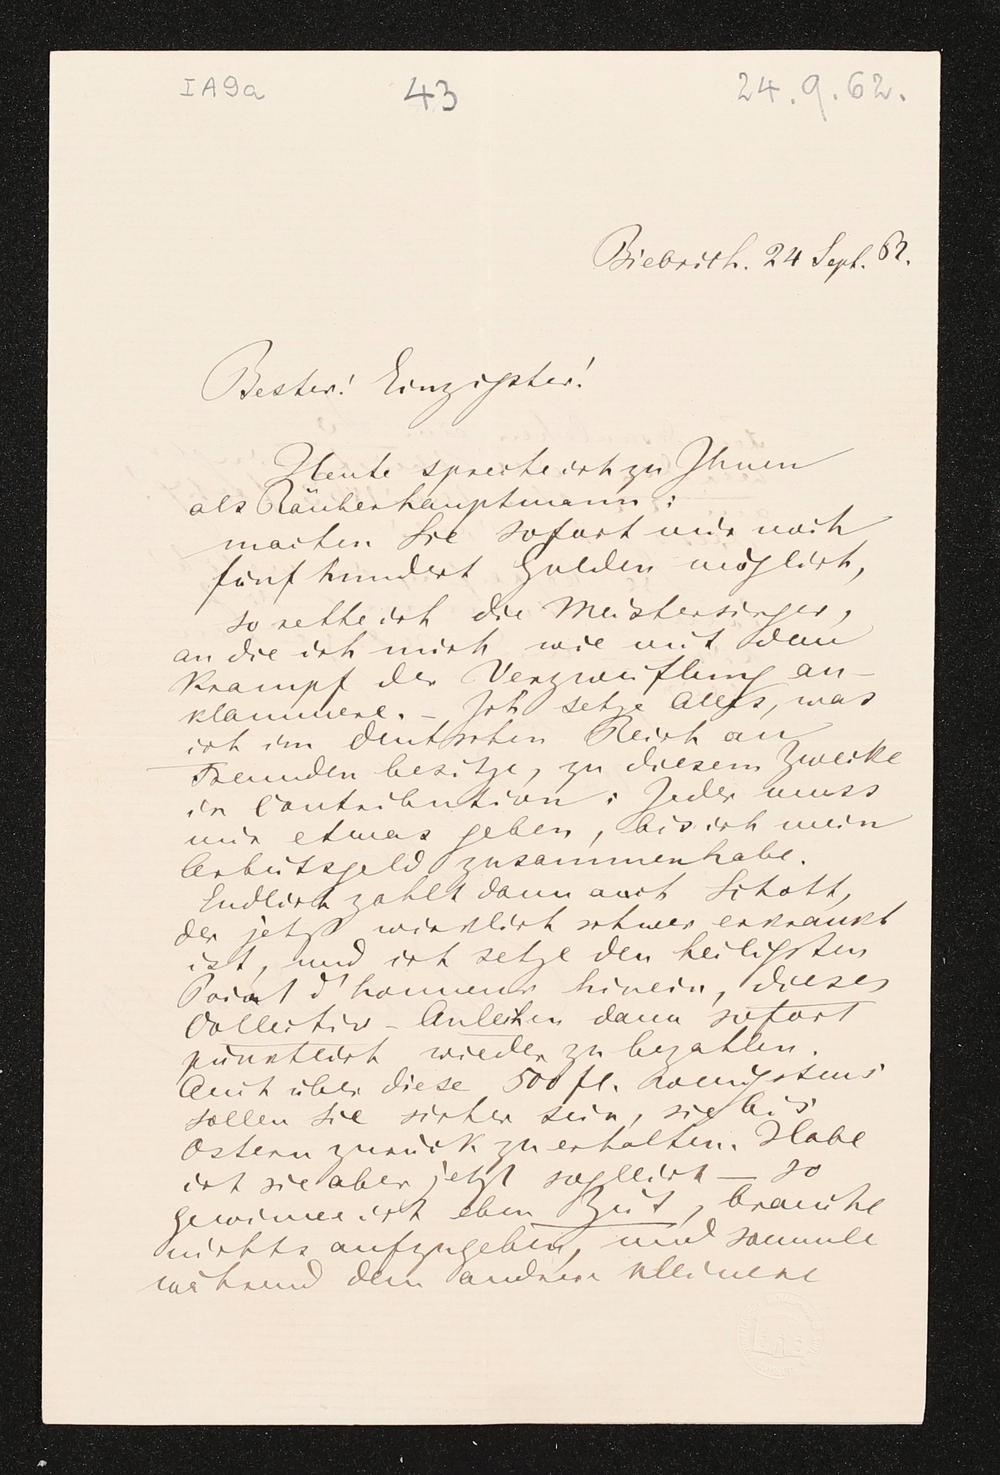 IA9a
43
24.9.62.
Biebrich. 24 Sept. 62.
Bester! Einzigster!
Heute spreche ich zu Ihnen
als Räuberhauptmann:
machen Sie sofort mir noch
fünfhundert Gulden möglich,
so rette ich die Meistersinger,
an die ich mich wie mit dem
Krampf der Verzweiflung an-
klammere. – Ich setze Alles, was
ich im deutschen Reich an
Freunden besitze, zu diesem Zwecke
in Contribution: Jeder muss
mir etwas geben, bis ich mein
Arbeitsgeld zusammenhabe.
Endlich zahlt dann auch Schott,
der jetzt wirklich schwer erkrankt
ist, und ich setze den heiligsten
Point d'honneur hinein, dieses
Collectiv-Anleihen dann sofort
pünktlich wieder zu bezahlen.
Auch über diese 500 fl. wenigstens
sollen Sie sicher sein, sie bis
Ostern zurück zu erhalten. Habe
ich sie aber jetzt sogleich — so
gewinne ich eben Zeit, brauche
nichts aufzugeben, und sammle
während dem andere kleinere